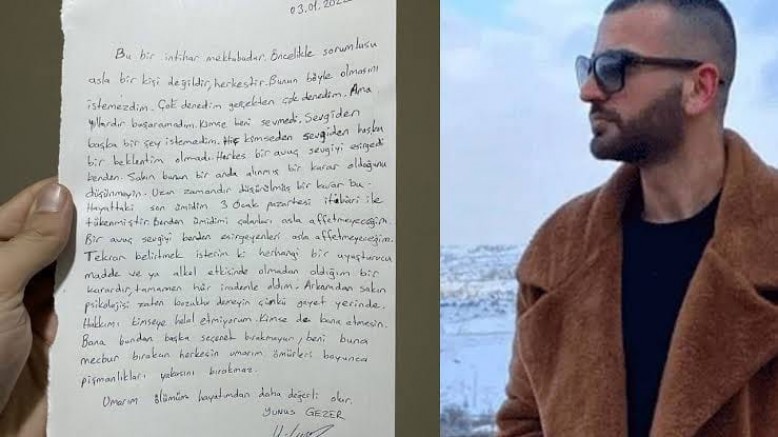 03.01.202
Bu bir intihar mektubudur. Öncelikle sorumlusu
asla bir kişi değildir, herkestir. Bunun böyle olmasını
istemezdim. Çok denedim gerçekten çok denedim. Ama
yıllardır başaramadım. Kimse beni sevmedi. Sevgiden
başka bir şey istemedim. Hiç kimseden sevgiden başka
bir beklentim olmadı. Herkes bir avuç sevgiyi esirgedi
benden. Sakın bunun bir anda alınmış bir karar olduğunu
düşünmeyin. Uzun zamandır düşünülmüş bir karar bu.
Hayattaki son ümidim 3 Ocak pazartesi itibari ile
tükenmiştir. Benden ümidimi çalanları asla affetmeyeceğim.
Bir avuç sevgiyi benden esirgeyenleri asla affetmeyeceğim.
Tekrar belirtmek isterim ki herhangi bir uyuşturucu
madde ve ya alkol etkisinde olmadan aldığım bir
karardır, tamamen hür irademle aldım. Arkamdan sakın
psikolojisi zaten bozuktu demeyin çünkü gayet yerinde.
Hakkımı kimseye helal etmiyorum. Kimse de bana etmesin.
Bana bundan başka seçenek bırakmayan, beni buna
mecbur bırakan herkesin umarım ömürleri boyunca
pişmanlıkları yakasını bırakmaz.
Umarım ölümüm hayatımdan daha değerli olur.
YUNUS GEZER